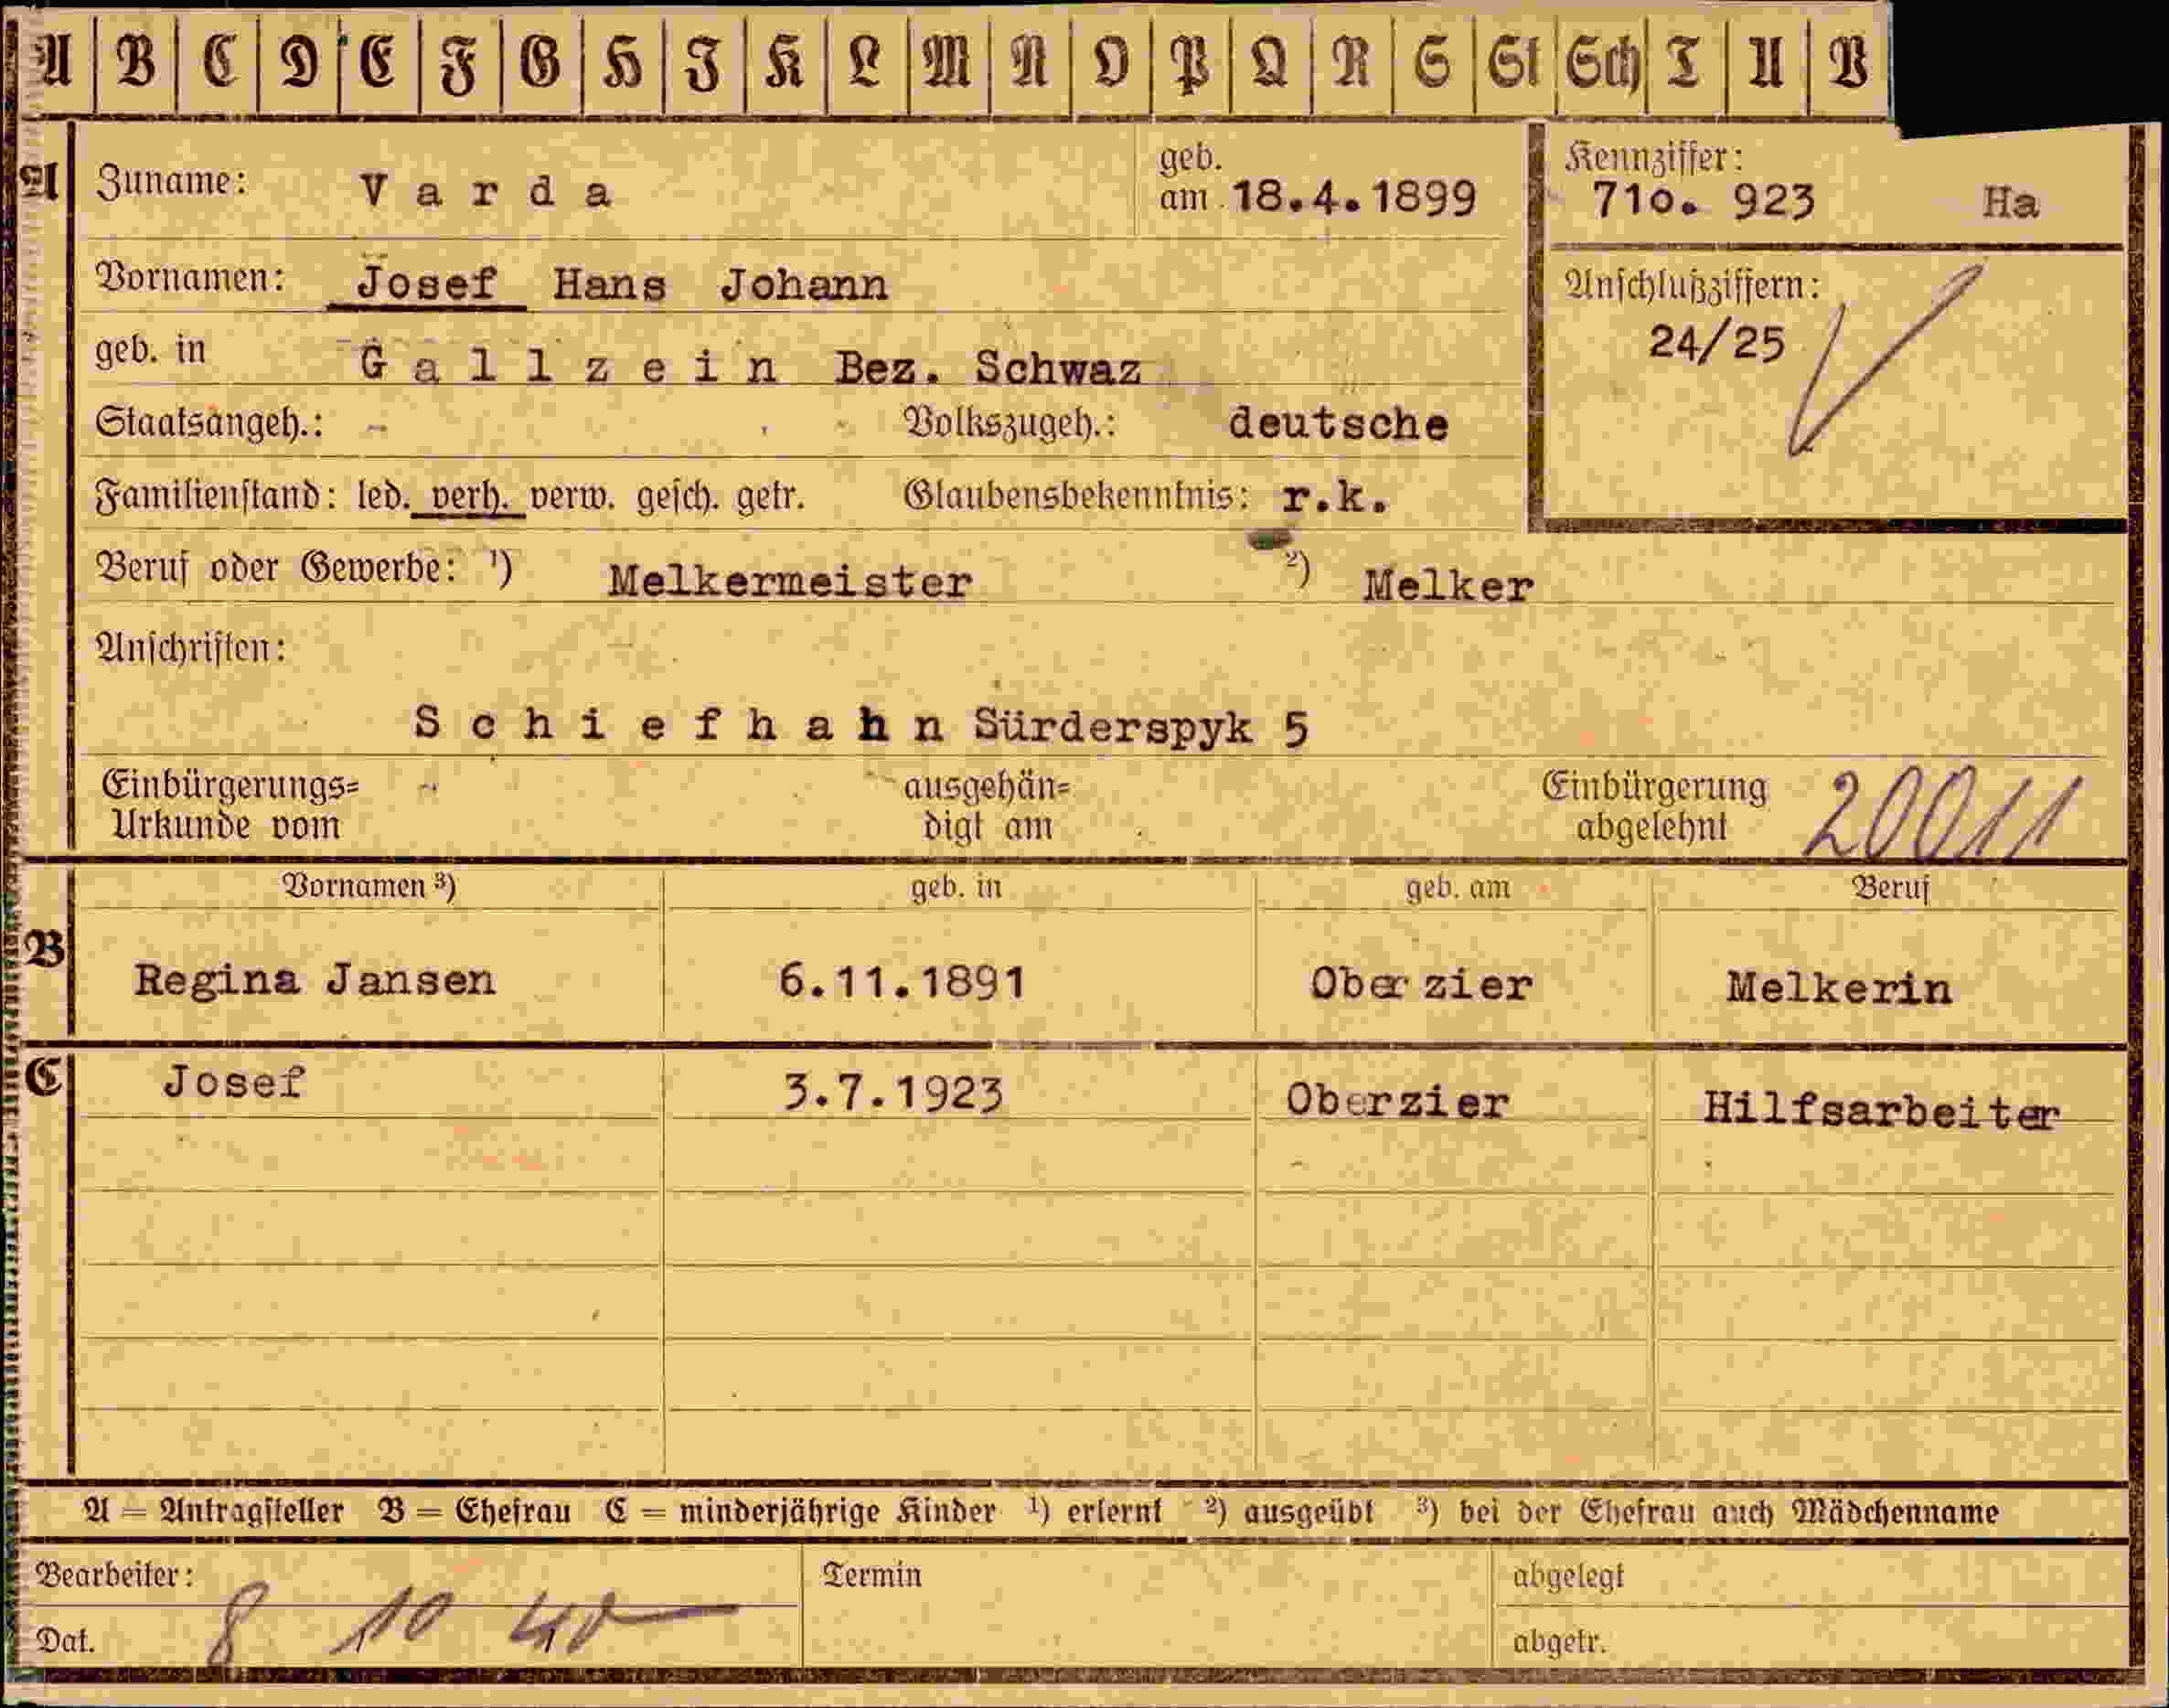 A B C D E F G H I K L M N O P Q R S St Sch T U V
A Zuname: Varda geb. am 18.4.1899 Kennziffer: 710. 923 Ha
Vornamen: Josef Hans Johann Anschlußziffern:
24/25
geb. in Gallzein Bez. Schwaz
Staatsangeh.: - Volkszugeh.: deutsche
Familienstand: led. verh. verw. gesch. getr. Glaubensbekenntnis: r.k.
Beruf oder Gewerbe: ¹) Melkermeister ²) Melker
Anschriften:
Schiefhahn Sürderspyk 5
Einbürgerungs= ausgehän= Einbürgerung 20011
Urkunde vom digt am abgelehnt
Vornamen ³) geb. in geb. am Beruf
B Regina Jansen 6.11.1891 Oberzier Melkerin
C Josef 3.7.1923 Oberzier Hilfsarbeiter
A = Antragsteller B = Ehefrau C = minderjährige Kinder ¹) erlernt ²) ausgeübt ³) bei der Ehefrau auch Mädchenname
Bearbeiter: Termin abgelegt
Dat. 8 10 40 abgetr.